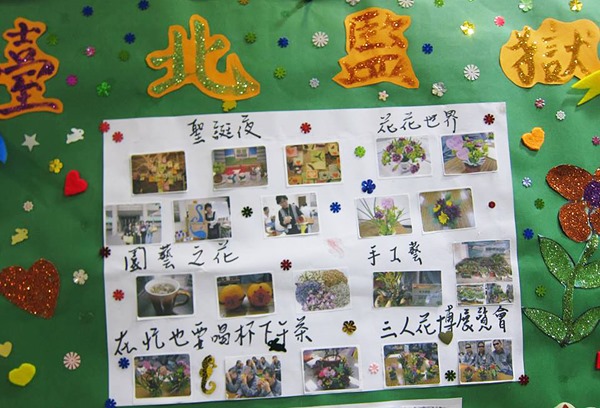 臺北監獄
聖誕夜
花花世界
園藝之花
手工藝
在忙也要喝杯下午茶
三人花博展覽會